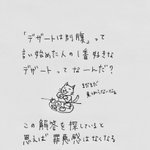 「デザートは別腹」って
言い始めた人の1番好きな
デザートってな〜んだ？
この解答を探していると
思えば罪悪感はなくなる